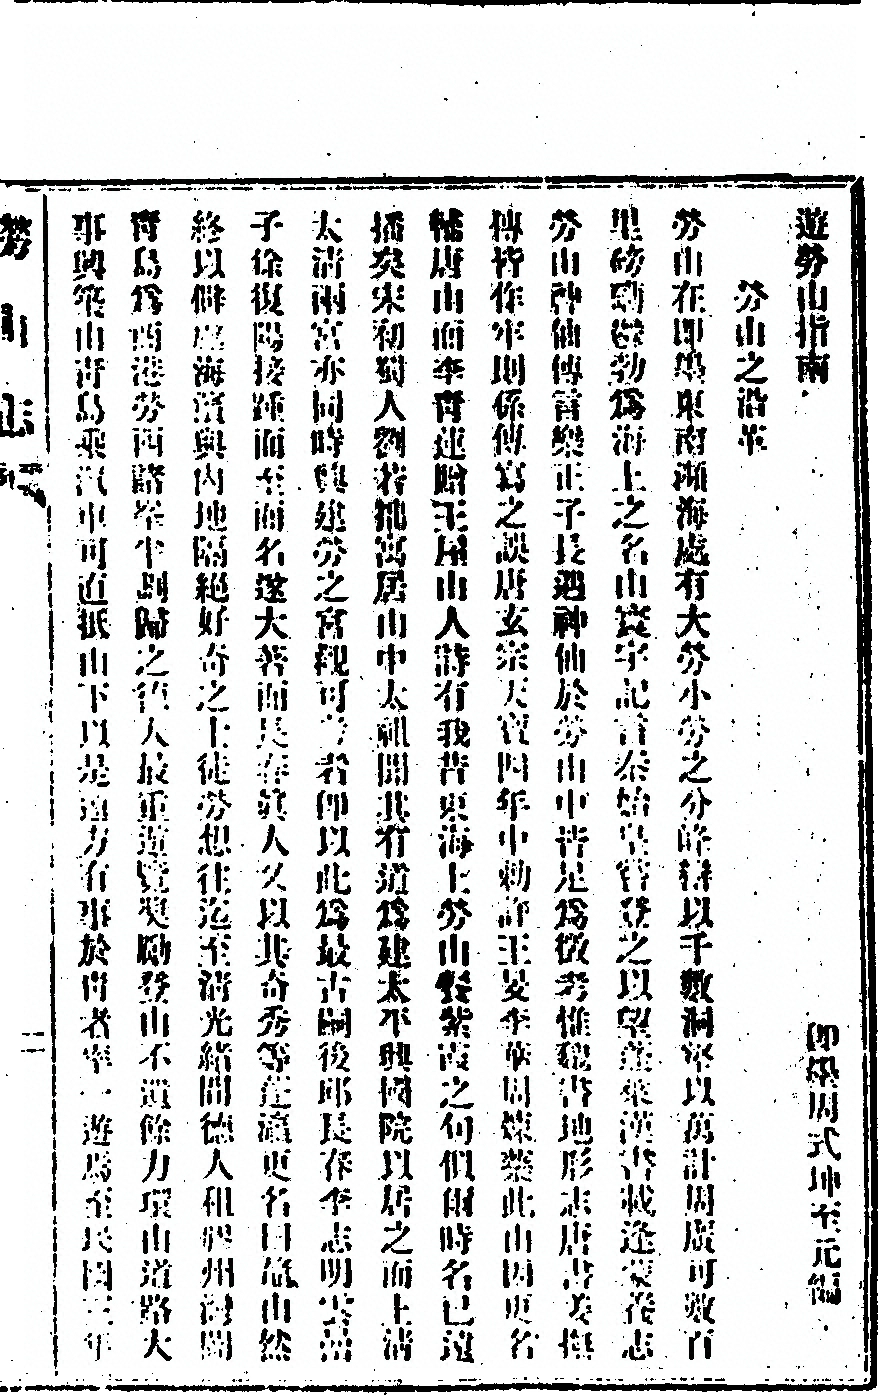 遊勞山指南
卽墨周式坤至元編
勞山之沿革
勞山在即墨東南瀕海處有大勞小勞之分峰巒以千數洞壑以萬計周廣可數百
里磅礴鬱勃爲海上之名山寰宇記言秦始皇嘗登之以望蓬萊漢書載逢萌養志
勞山神仙傳言樂正子長遇神仙於勞山中皆足爲徵考惟魏書地形志唐書姜撫
傳皆作牢則係傳寫之誤唐玄宗天寶四年中勅許王旻李華周煉藥此山因更名
輔唐山而李青蓮贈王屋山人詩有我昔東海上勞山餐紫霞之句似爾時名已遠
播矣宋初蜀人劉若拙寓居山中太祖聞其有道爲建太平興國院以居之而上清
太清兩宮亦同時興建勞之宮觀可考者卽以此爲最古嗣後邱長春李志明雲嵓
子徐復陽接踵而至而名遂大著而長春眞人又以其奇秀等蓬瀛更名曰鼇山然
終以僻處海濱與內地隔絕好奇之士徒勞想往迄至清光緒間德人租膠州灣闢
青島爲商港勞西諸峯半劃歸之德人最重遊覽奬勵登山不遺餘力環山道路大
事興築山靑島乘汽車可直抵山下以是遠方有事於靑者率一遊焉至民國三年
勞山志
二